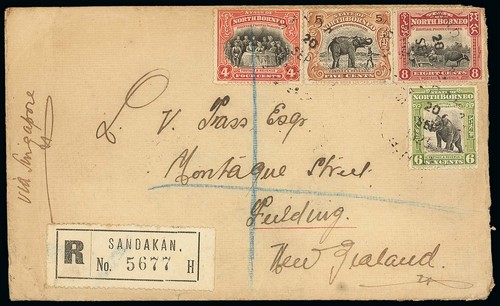 STATE OF NORTH BORNEO
4 4
FOUR CENTS
STATE OF
5 5
NORTH BORNEO
FIVE CENTS
STATE OF
NORTH BORNEO
8 8
EIGHT CENTS
20
SEP
20
SEP
STATE OF
NORTH BORNEO
6 6
SIX CENTS
via Singapore
L. V. Pass Esqr
Montague Street
Feilding.
New Zealand.
R
SANDAKAN.
No. 5677 H